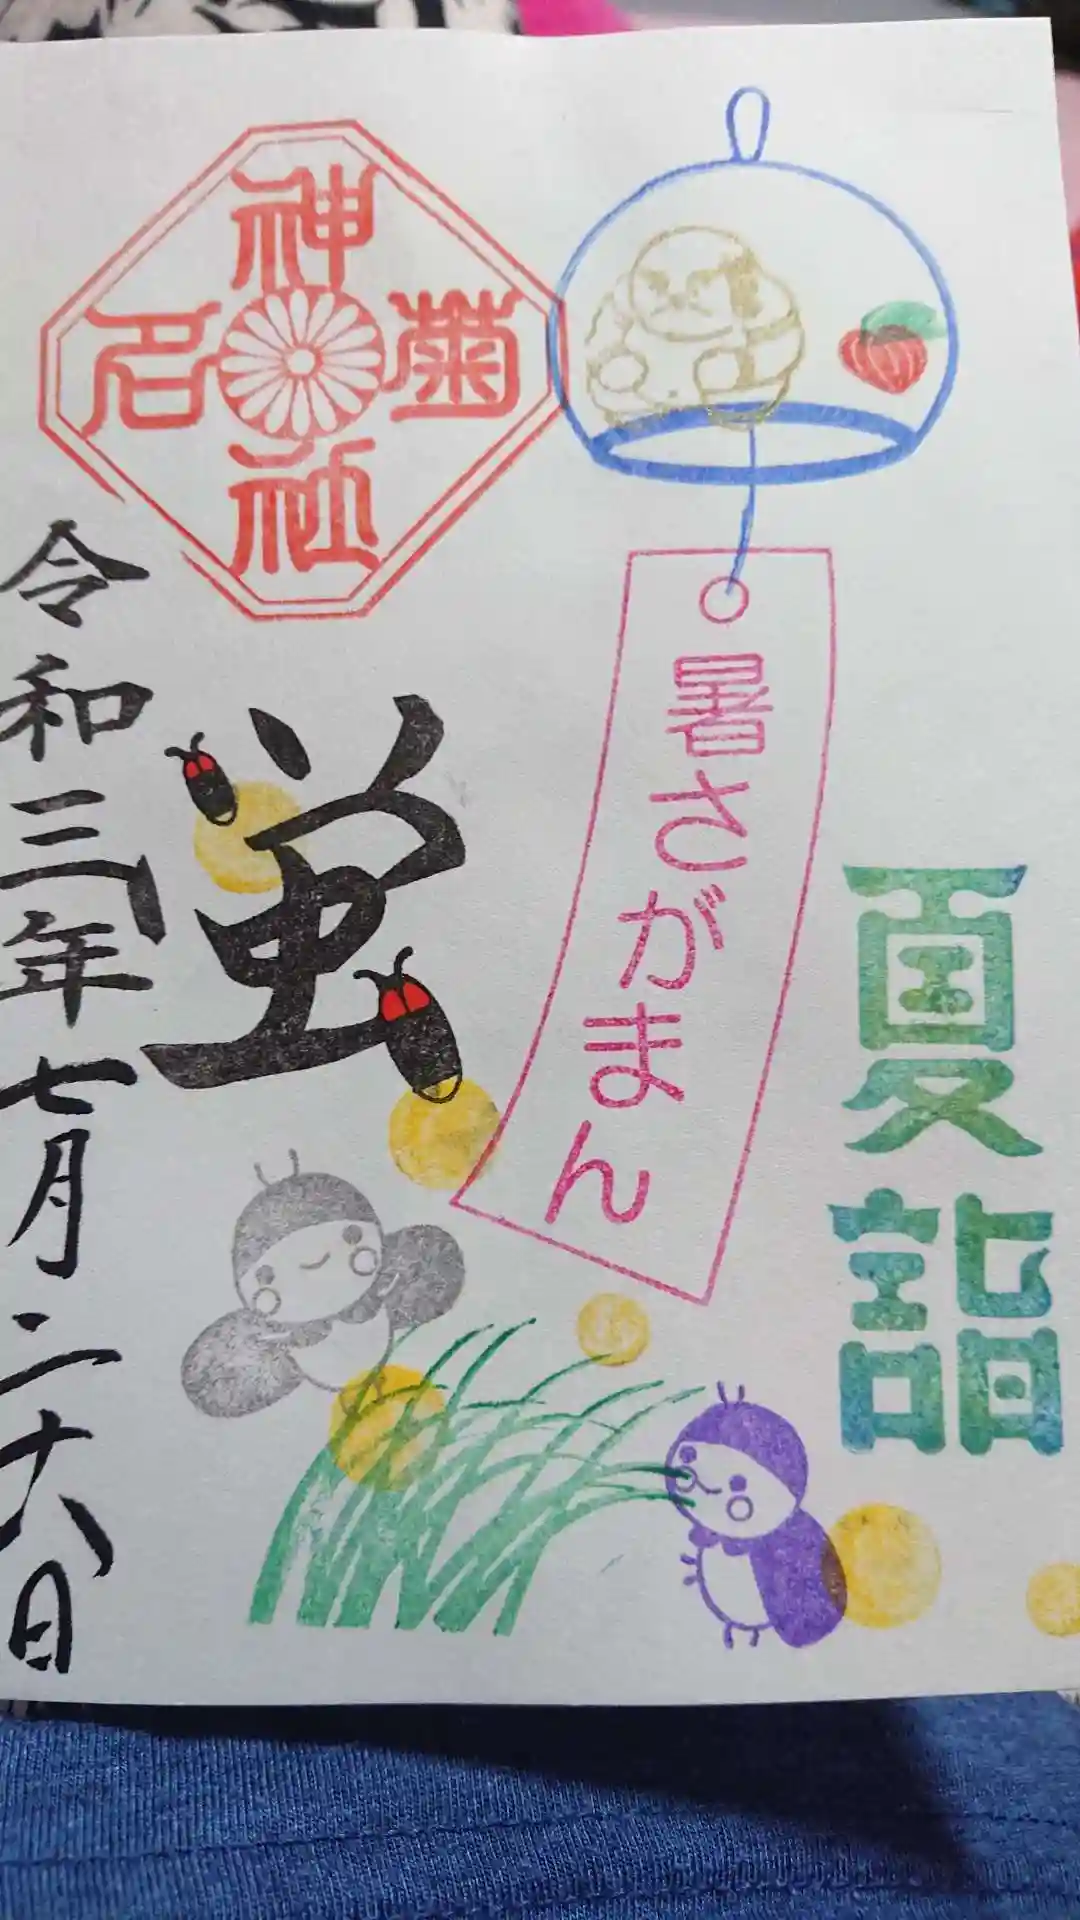 夏詣
暑さがまん
菊名
神社
蛍
令和三年七月二十六日